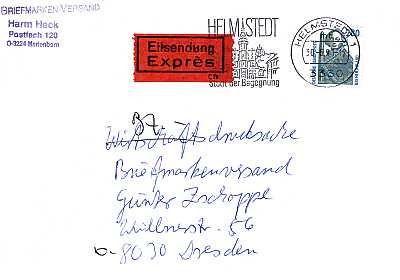 BRIEFMARKEN-VERSAND
Harm Heck
Postfach 120
O-3224 Marienborn
Eilsendung
Exprès
HELMSTEDT
Stadt der Begegnung
HELMSTEDT 1
3330
Wirtschaftsdrucksache
Briefmarkenversand
Günter Zschoppe
Wüllnerstr. 56
O-8030 Dresden